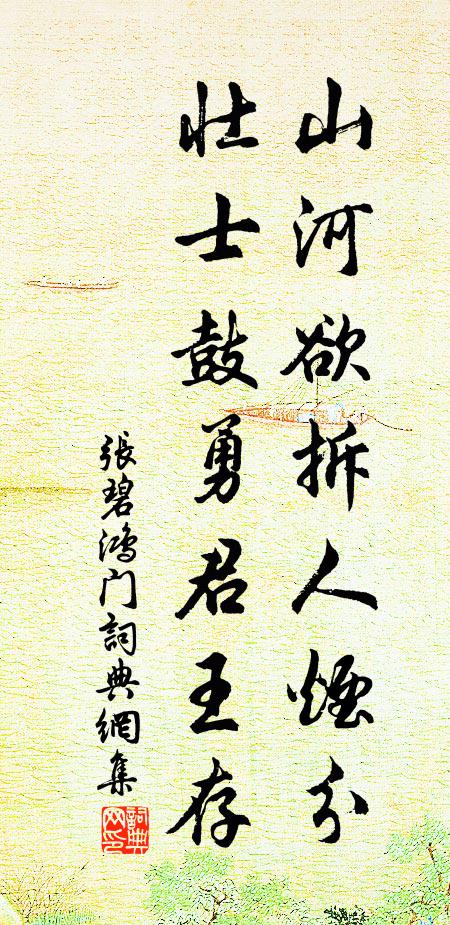 山河欲拆人煙分
壯士鼓勇君王存
張碧鴻门詞典網集
詞典
网印